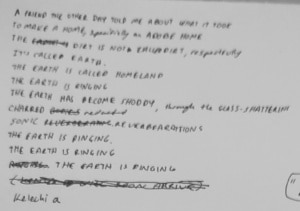 A FRIEND THE OTHER DAY TOLD ME ABOUT WHAT IT TOOK
TO MAKE A HOME, specifically an ADOBE HOME
THE DIRT IS NOT DIRT, respectfully
IT'S CALLED EARTH.
THE EARTH IS CALLED HOMELAND
THE EARTH IS RINGING
THE EARTH HAS BECOME SHODDY, through the GLASS-SHATTERING
CHARRED
SONIC REVERBERATIONS
THE EARTH IS RINGING.
THE EARTH IS RINGING
THE EARTH IS RINGING
Kelechi a